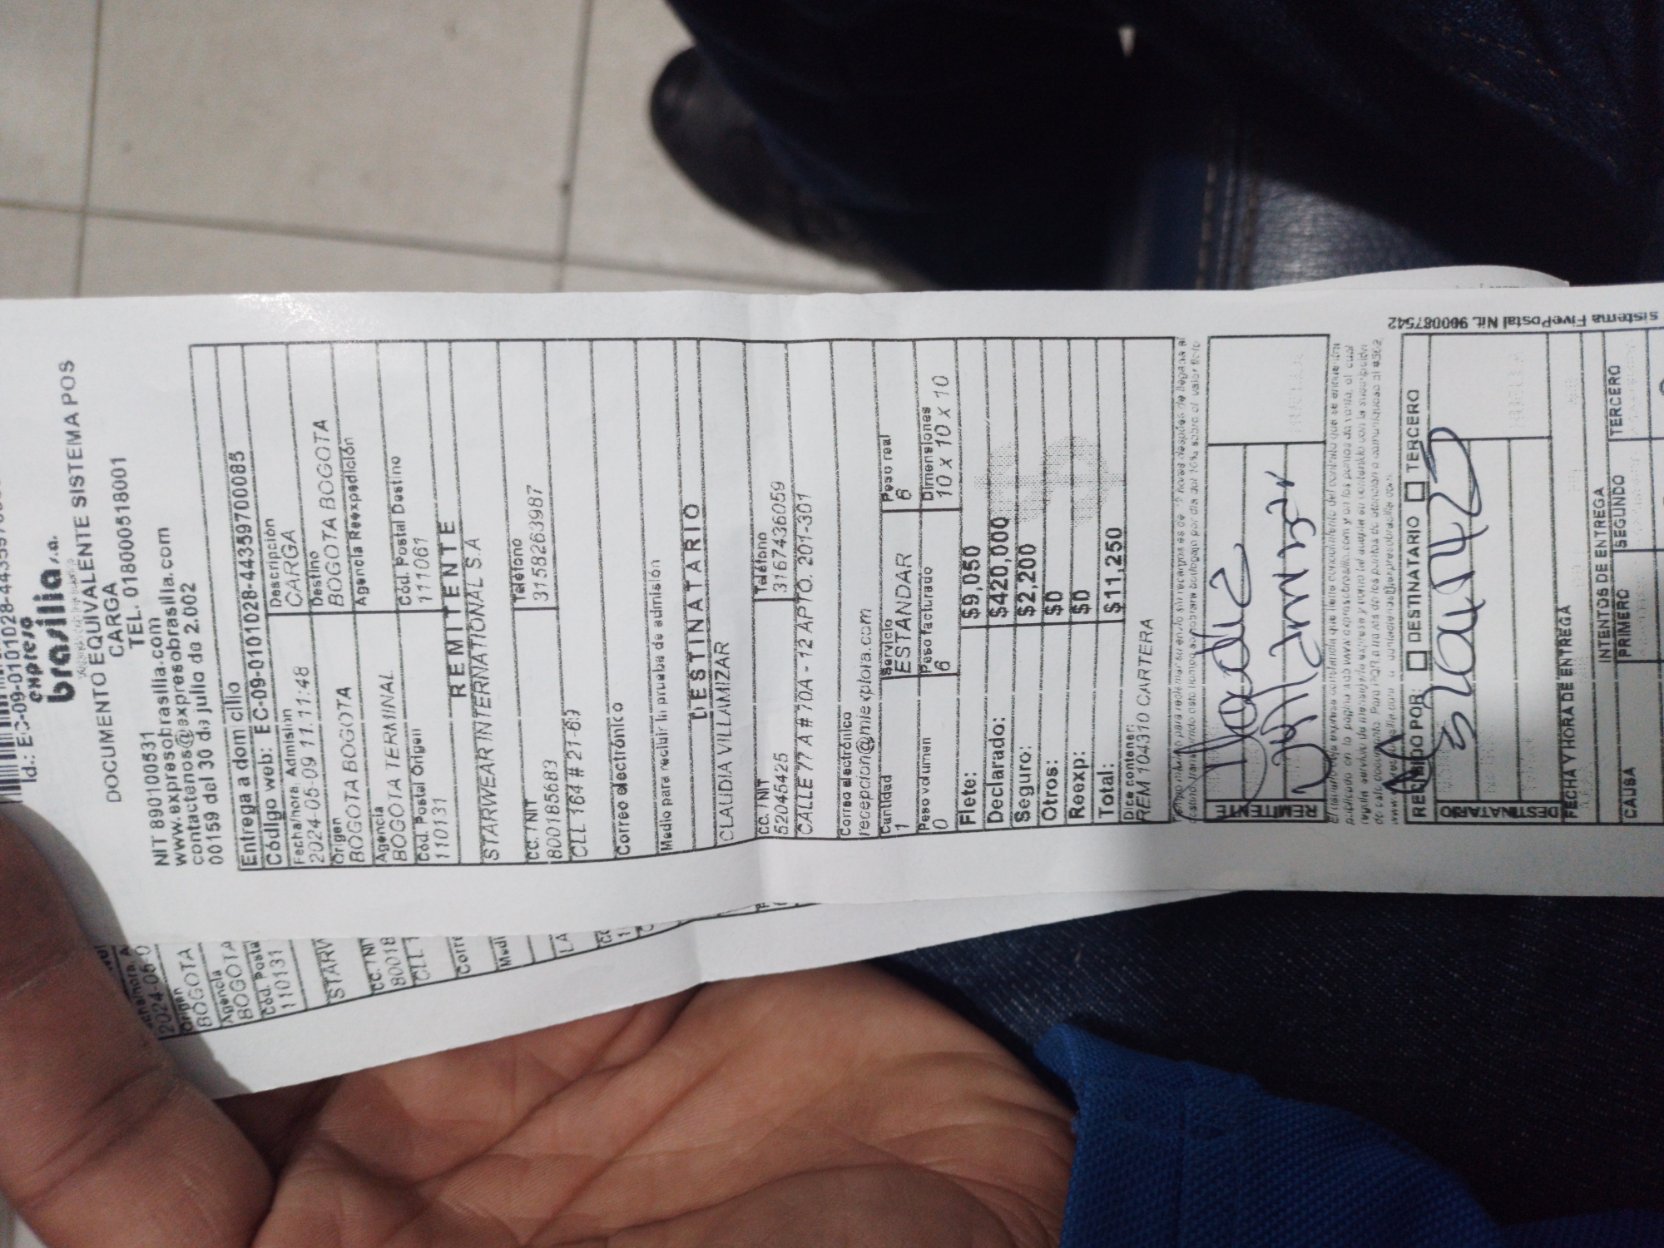 Id.: EC-09-0101028-44359
expreso
brasilia s.a.
DOCUMENTO EQUIVALENTE SISTEMA POS
CARGA
TEL. 018000518001
NIT 890100531
www.expresobrasilia.com
contactenos@expresobrasilia.com
00159 del 30 de julio de 2.002
Entrega a domicilio
Código web: E-C-09-0101028-44359700085
Fecha/hora. Admisión Descripción
2024-05-09 11:11:48 CARGA
Origen Destino
BOGOTA BOGOTA BOGOTA BOGOTA
Agencia Agencia Reexpedición
BOGOTA TERMINAL
Cód. Postal Origen Cód. Postal Destino
110131 111061
REMITENTE
STARWEAR INTERNATIONAL S.A
CC. / NIT Teléfono
800185683 3158263987
CLL 164 # 21-69
Correo electrónico
Medio para recibir la prueba de admisión
DESTINATARIO
CLAUDIA VILLAMIZAR
CC. / NIT Teléfono
52045425 3167436059
CALLE 77 A # 70A - 12 APTO. 201-301
Correo electrónico
recepcion@miexplora.com
Cantidad Servicio Peso real
1 ESTANDAR 6
Peso volumen Peso facturado Dimensiones
0 6 10 x 10 x 10
Flete: $9,050
Declarado: $420,000
Seguro: $2,200
Otros: $0
Reexp: $0
Total: $11,250
Dice contener:
REM 104310 CARTERA
REMITENTE
Villamizar
sistema FivePostal Nit. 900087542
RECIBIDO POR: DESTINATARIO TERCERO
DESTINATARIO
FECHA Y HORA DE ENTREGA
INTENTOS DE ENTREGA
CAUSA PRIMERO SEGUNDO TERCERO
2024-05-0
Origen
BOGOTA
Agencia
BOGOTA
Cód. Posta
110131
STARW
CC. / NIT
80018
CLL 1
Corre
Medi
LA